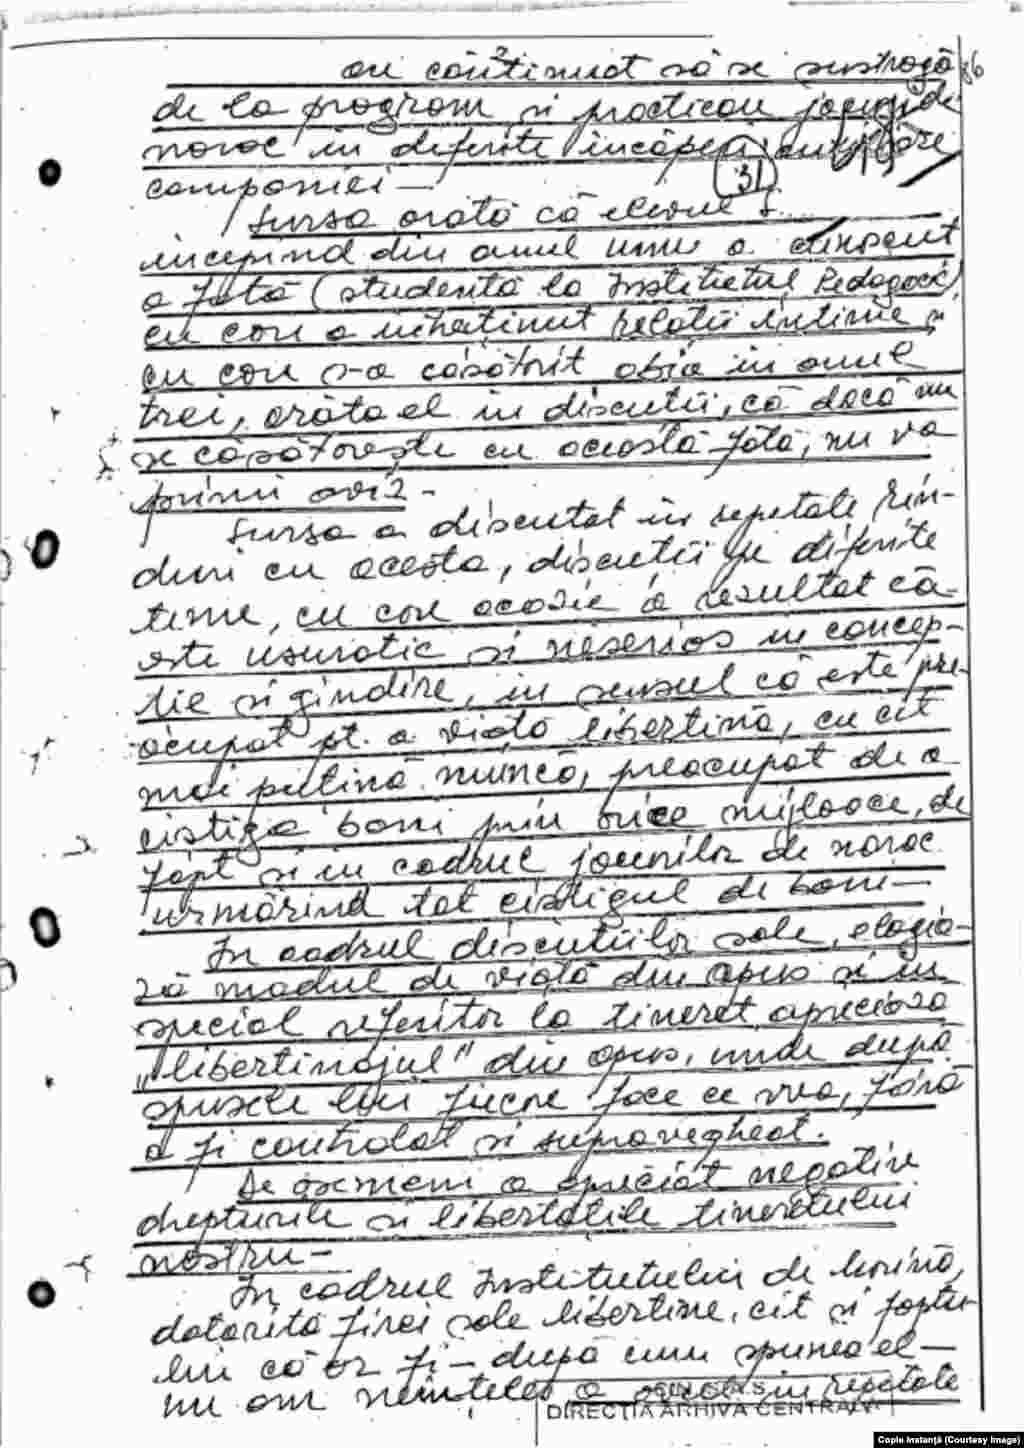 2
au continuat să se sustragă
86
de la program și practicau jocuri de
noroc în diferite încăperi
companiei —
31
Sursa arată că elevul
începînd din anul unu a cunoscut
o fată (studentă la Institutul Pedagogic)
cu care a întreținut relații intime și
cu care s-a căsătorit abia în anul
trei, arăta el în discuții, că dacă nu
se căsătorește cu această fată, nu va
primi aviz -
Sursa a discutat în repetate rîn-
duri cu acesta, discuții pe diferite
teme, cu care ocazie a rezultat că
este usuratic și neserios în concep-
ție și gîndire, în sensul că este pre-
ocupat pt. a viață libertină, cu cît
mai puțină muncă, preocupat de a
cîstiga bani prin orice mijloace, de
fapt și în cadrul jocurilor de noroc
urmărind tot cîstigul de bani —
În cadrul discuțiilor sale, elogia-
ză modul de viață din apus și în
special referitor la tineret apreciază
„libertinajul" din apus, unde după
spusele lui fiecare face ce vrea, fără
a fi controlat și supravegheat.
De asemeni a apreciat negativ
drepturile și libertățile tineretului
nostru —
În cadrul Institutului de Marină,
datorită firei sale libertine, cît și faptu-
lui că ar fi — după cum spunea el —
nu om neînțeles a în repetate
C.N.S.A.S.
DIRECȚIA ARHIVA CENTRALĂ
Copie Instanță (Courtesy Image)